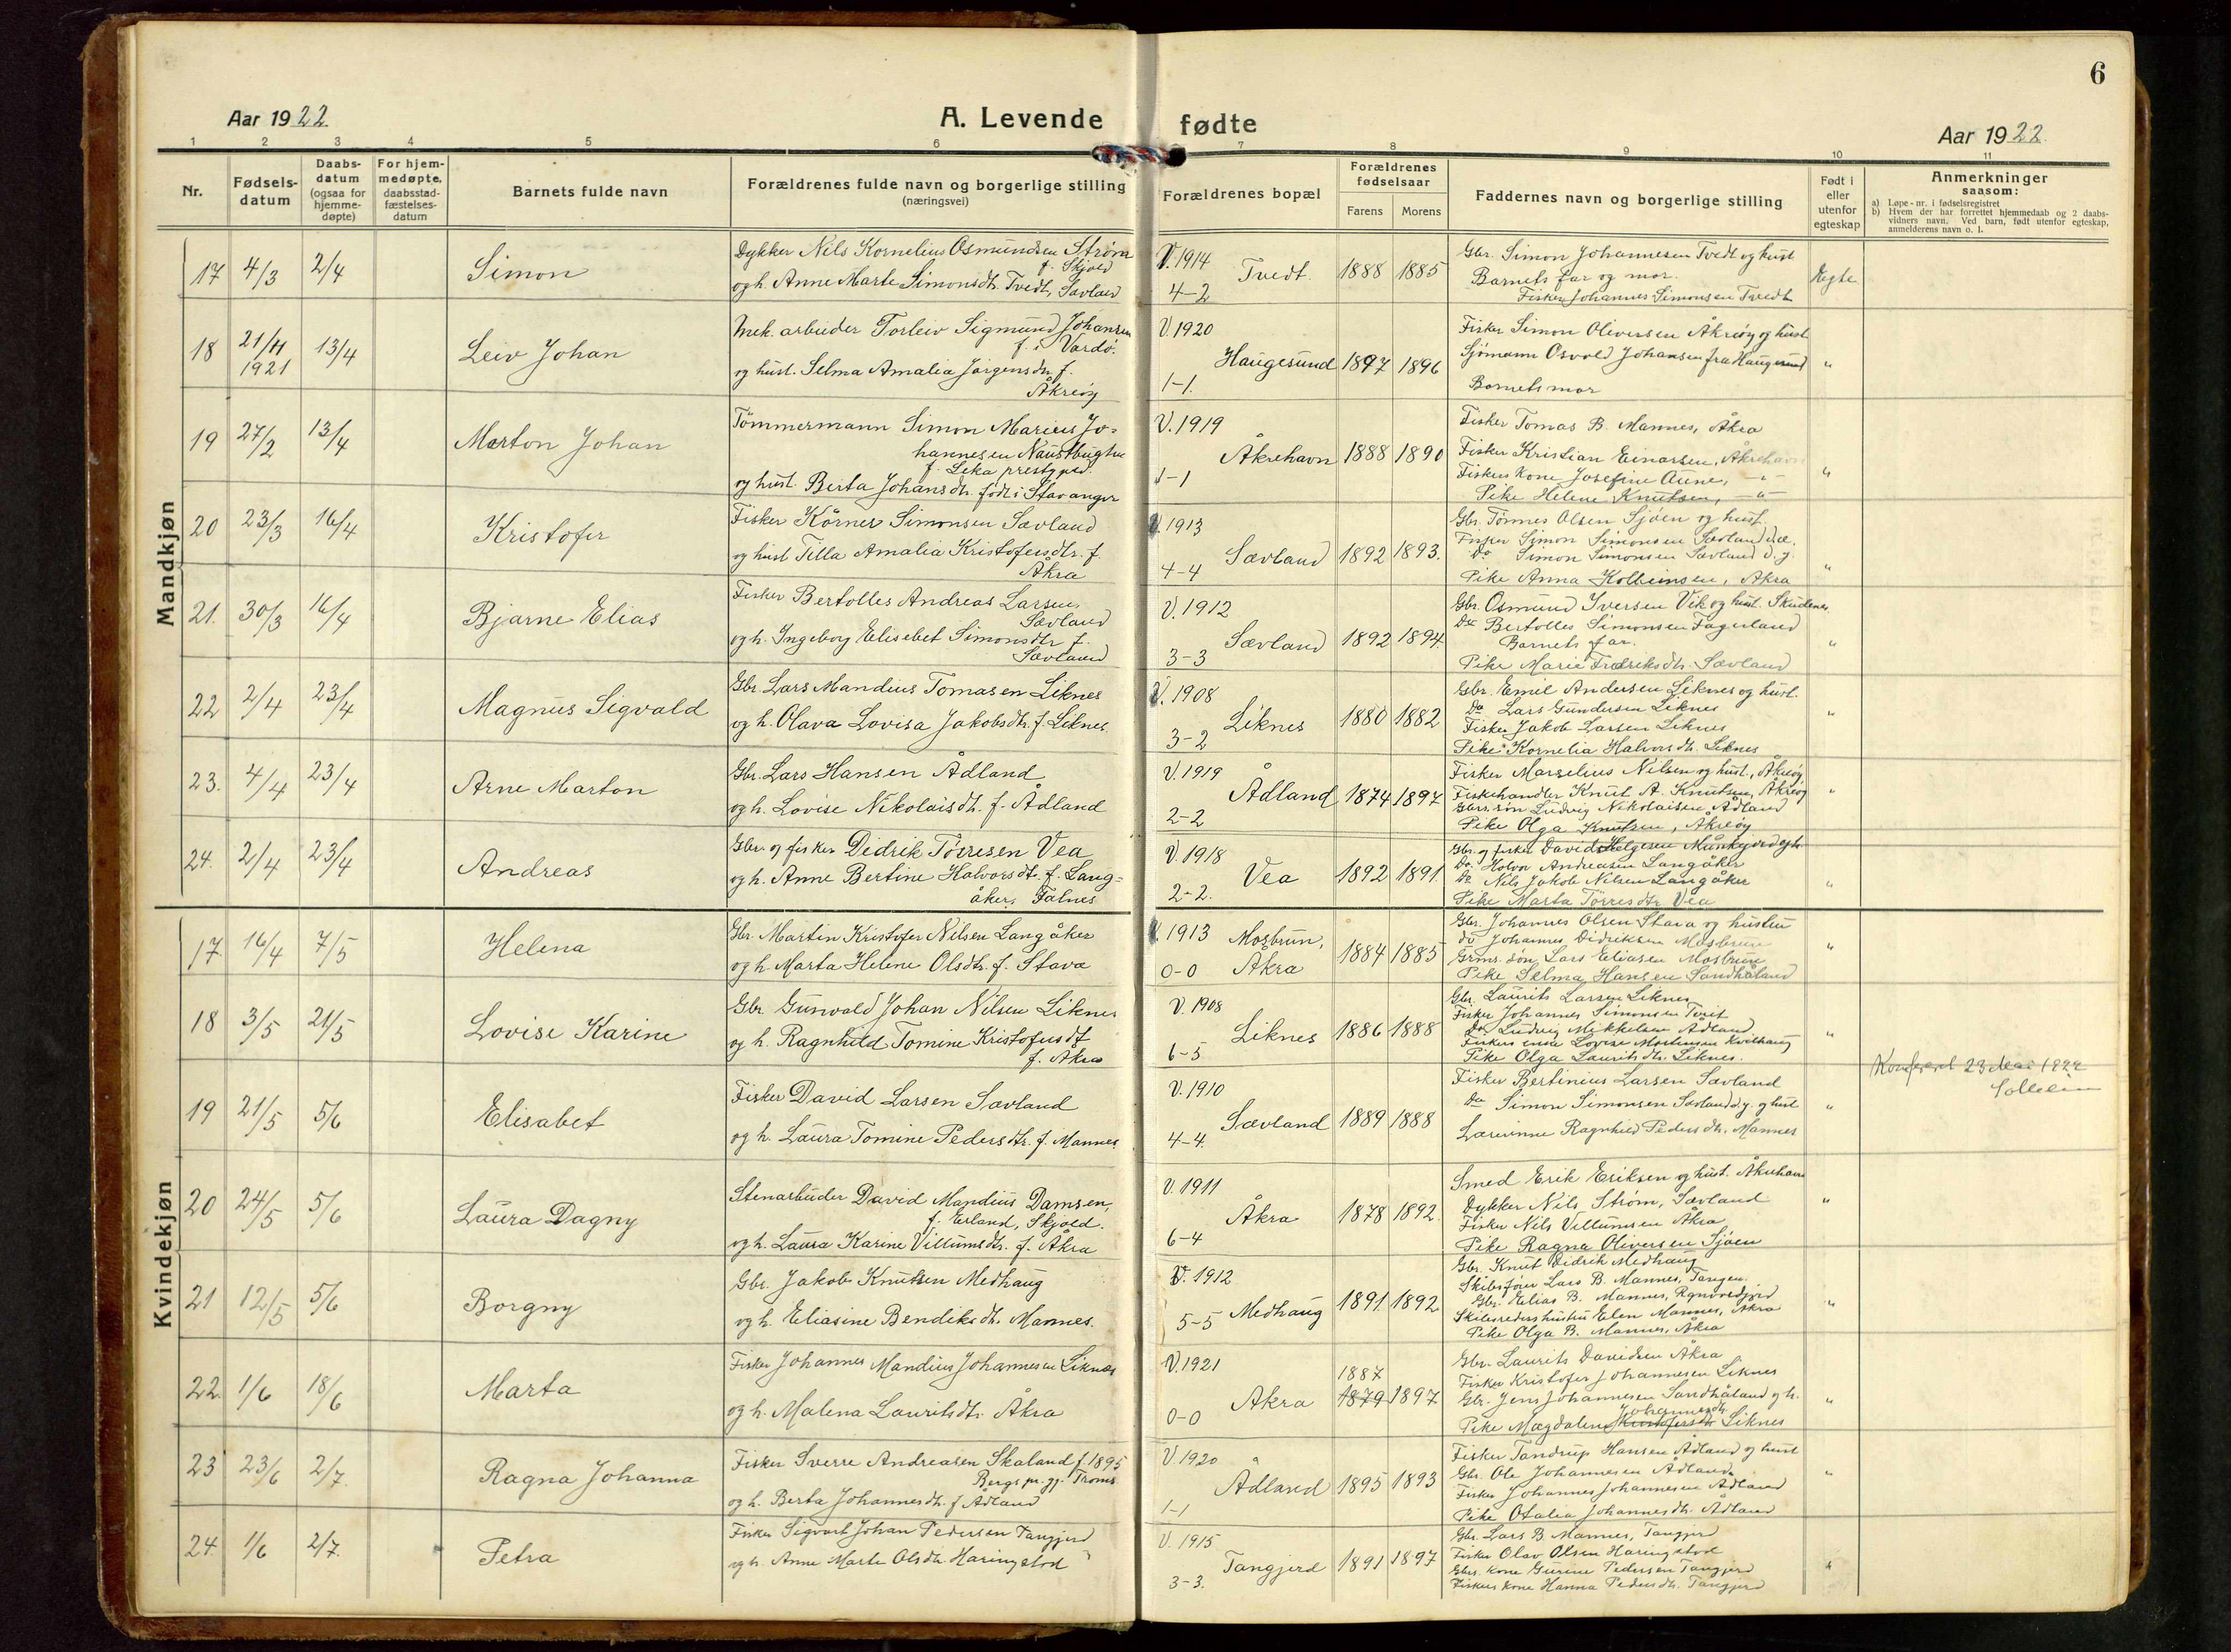 6
Aar 1922.
A. Levende fødte
Aar 1922.
1 2 3 4 5 6 7 8 9 10 11
Nr.
Fødsels-
datum
Daabs-
datum
(ogsaa for
hjemme-
døpte)
For hjem-
medøpte,
daabsstad-
fæstelses-
datum
Barnets fulde navn
Forældrenes fulde navn og borgerlige stilling
(næringsvei)
Forældrenes bopæl
Forældrenes
fødselsaar
Farens Morens
Faddernes navn og borgerlige stilling
Født i
eller
utenfor
egteskap
Anmerkninger
saasom:
a) Løpe-nr. i fødselsregistret
b) Hvem der har forrettet hjemmedaab og 2 daabs-
vidners navn. Ved barn, født utenfor egteskap,
anmelderens navn o. l.
Mandkjøn
17 4/3 2/4 Simon
Dykker Nils Kornelius Osmundsen Strøm
f. Skjold
og h. Anne Marte Simonsdtr. Tvedt, Sævland
V. 1914
4-2 Tvedt. 1888 1885
Gbr. Simon Johannesen Tvedt og hust
Barnets far og mor.
Fisker Johannes Simonsen Tvedt
Egte
18 21/11 1921 13/4 Leiv Johan
Mek. arbeider Torleiv Sigmund Johansen
f. i Vardö.
og hust. Selma Amalia Jörgensdtr. f.
Åkreöy
V. 1920
Haugesund 1897 1896
1-1.
Fisker Simon Oliversen Åkreöy og hust
Sjömann Osvald Johansen fra Haugesund "
Barnets mor
19 27/2 13/4 Marton Johan
Tömmermann Simon Marius Jo=
hannesen Naustbugten
f. Leka prestgjeld.
og hust. Berta Johansdtr. født i Stavanger
V. 1919
Åkrehavn 1888 1890
1-1
Fisker Tomas B. Mannes, Åkra
Fisker Kristian Einarsen, Åkrehavn
Fiskers kone Josefine Aune, -"- "
Pike Helene Knutsen, -"-
20 23/3 16/4 Kristofer
Fisker Körner Simonsen Sævland
og hust Tilla Amalia Kristofersdtr. f.
Åkra
V. 1913
4-4 Sævland 1892 1893.
Gbr. Tönnes Olsen Sjöen og hust.
Fisker Simon Simonsen Sævland d.æ.
Do Simon Simonsen Sævland d.y.
Pike Anna Kolbeinsen, Åkra "
21. 30/3 16/4 Bjarne Elias
Fisker Bertolles Andreas Larsen
Sævland
og h. Ingeborg Elisebet Simonsdtr f.
Sævland
V. 1912
3-3 Sævland 1892 1894.
Gbr. Osmund Iversen Vik og hust. Skudenes
Do Bertolles Simonsen Fagerland
Barnets far. "
Pike Marie Fredriksdtr. Sævland
22 2/4 23/4 Magnus Sigvald
Gbr. Lars Mandius Tomasen Liknes
og h. Olava Lovisa Jakobsdtr. f. Liknes.
V. 1908
3-2 Liknes 1880 1882
Gbr. Emil Andersen Liknes og hust.
Do Lars Gundersen Liknes
Fisker Jakob Larsen Liknes "
Pike Kornelia Halvorsdtr. Liknes
23. 4/4 23/4 Arne Marton
Gbr. Lars Hansen Ådland
og h. Lovise Nikolaisdtr. f. Ådland
V. 1919
2-2 Ådland 1874 1897
Fisker Marselius Nilsen og hust., Åkreöy
Fiskehandler Knut A. Knutsen, Åkreöy "
Gbrs. sön Ludvig Nikolaisen Ådland
Pike Olga Knutsen, Åkreöy
24. 2/4 23/4 Andreas
Gbr. og fisker Didrik Törresen Vea
og h. Anne Bertine Halvorsdtr. f. Lang=
åker, Falnes
V. 1918
2-2. Vea 1892 1891.
Gbr. og fisker David Helgesen
Do. Halvor Andreasen Langåker
Do Nils Jakob Nilsen Langåker "
Pike Marta Törresdtr Vea
Kvindekjøn
17. 16/4 7/5 Helena
Gbr. Martin Kristofer Nilsen Langåker
og h. Marta Helene Olsdtr. f. Stava
V. 1913 Mosbrun,
0-0 Åkra 1884 1885
Gbr. Johannes Olsen Stava og hustru
do Johannes Didriksen Mosbrun "
Grms. sön Lars Eliasen Mosbrun
Pike Selma Hansen Sandhåland
18 3/5 21/5 Lovise Karine
Gbr. Gunvald Johan Nilsen Liknes
og h. Ragnhild Tomine Kristofersdt
f. Åkra
V. 1908
6-5 Liknes 1886 1888
Gbr. Laurits Larsen Liknes
Fisker Johannes Simonsen Tveit
Do Ludvig Mikkelsen Ådland "
Fiskers enke Lovise Mortensen Kvilhaug
Pike Olga Lauritsdtr. Liknes.
Konferert 23 Mai 1922
19 21/5 5/6 Elisabet
Fisker David Larsen Sævland
og h. Laura Tomine Pedersdtr. f. Mannes.
V. 1910
4-4. Sævland 1889 1888
Fisker Bertinius Larsen Sævland
Do Simon Simonsen Sævland d.y. og hust "
Lærerinne Ragnhild Pedersdtr. Mannes
20 24/5 5/6 Laura Dagny
Stenarbeider David Mandius Damsen,
f. Erland, Skjold.
og h. Laura Karine Villumsdtr. f. Åkra
V. 1911
6-4 Åkra 1878 1892.
Smed Erik Eriksen og hust. Åkrehavn
Dykker Nils Strøm, Sævland "
Fisker Nils Villumsen Åkra
Pike Ragna Oliversen Sjöen
21 12/5 5/6 Borgny
Gbr. Jakob Knutsen Medhaug
og h. Eliasine Bendiksdtr. Mannes.
V. 1912
5-5 Medhaug 1891. 1892
Gbr. Knut Didrik Medhaug
Skibsförer Lars B. Mannes, Tangen.
Gbr. Elias B. Mannes,
Skibsreders hustru Elen Mannes, Åkra "
Pike Olga B. Mannes, Åkra
22. 1/6 18/6 Marta
Fisker Johannes Mandius Johannesen Liknes
og h. Malena Lauritsdtr. Åkra
V. 1921
1887
0-0 Åkra 1879 1897
Gbr. Laurits Davidsen Åkra
Fisker Kristofer Johannesen Liknes
Gbr. Jens Johannesen Sandhåland og h. "
Johannesdtr.
Pike Magdalena Kristofersdtr Liknes
23 23/6 2/7. Ragna Johanna
Fisker Sverre Andreasen Skaland f. 1895
Bergs pr. gj. Troms
og h. Berta Johannesdtr. f Ådland
V. 1920
1-1 Ådland 1895 1893
Fisker Tandrup Hansen Ådland og hust
Gbr. Ole Johannesen Ådland. "
Fisker Johannes Johannesen Ådland
Pike Otalia Johannesdtr. Ådland
24. 1/6 2/7. Petra
Fisker Sigvart Johan Pedersen Tangjerd
og h. Anne Marte Olsdtr. Haringstad
V. 1915
3-3. Tangjerd 1891 1897
Gbr. Lars B. Mannes, Tangjerd
Fisker Olav Olsen Haringstad
Gbrs. kone Gurine Pedersen Tangjerd "
Fiskers kone Hanna Pedersdtr. Tangjerd